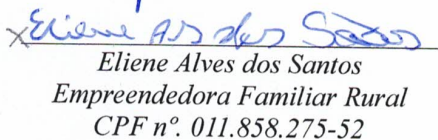 x Eliene Alves dos Santos
Eliene Alves dos Santos
Empreendedora Familiar Rural
CPF nº. 011.858.275-52